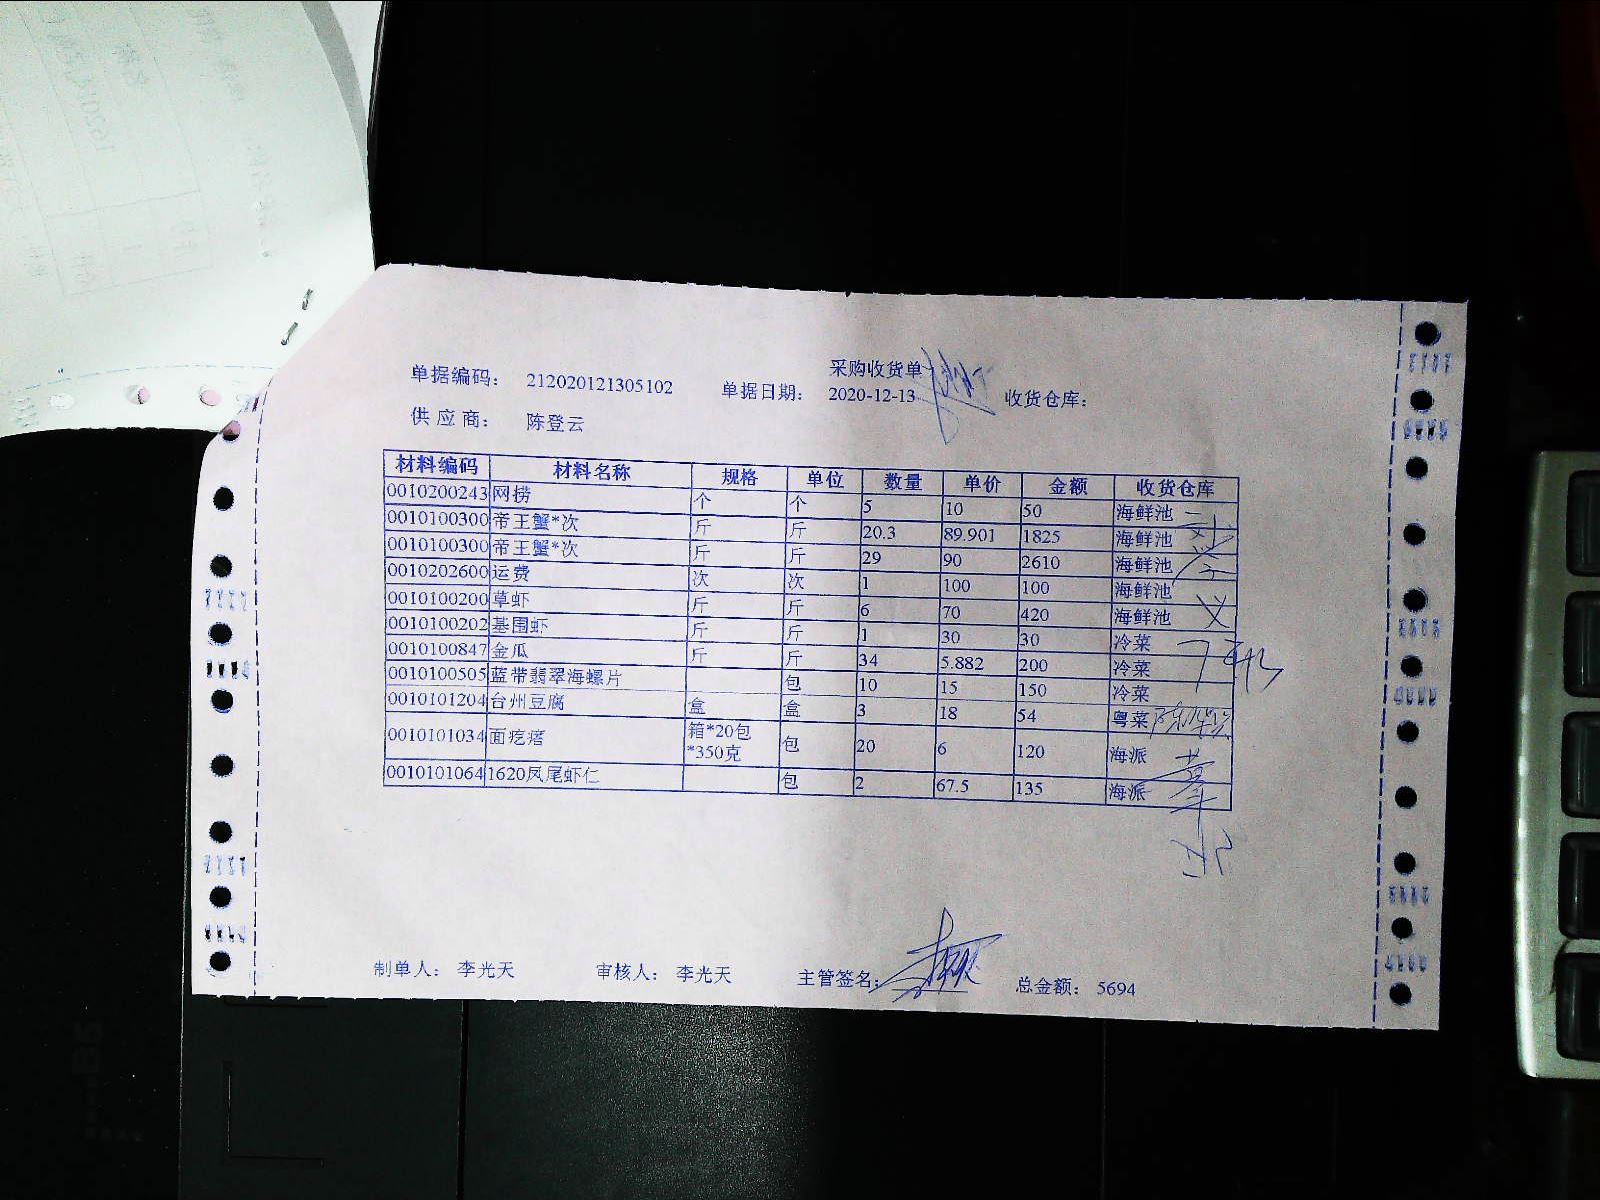 采购收货单
单据编码： 212020121305102 单据日期： 2020-12-13 收货仓库：
供应商： 陈登云
材料编码 材料名称 规格 单位 数量 单价 金额 收货仓库
0010200243 网捞 个 个 5 10 50 海鲜池
0010100300 帝王蟹*次 斤 斤 20.3 89.901 1825 海鲜池
0010100300 帝王蟹*次 斤 斤 29 90 2610 海鲜池
0010202600 运费 次 次 1 100 100 海鲜池
0010100200 草虾 斤 斤 6 70 420 海鲜池
0010100202 基围虾 斤 斤 1 30 30 冷菜
0010100847 金瓜 斤 斤 34 5.882 200 冷菜
0010100505 蓝带翡翠海螺片 包 10 15 150 冷菜
0010101204 台州豆腐 盒 盒 3 18 54 粤菜
0010101034 面疙瘩 箱*20包*350克 包 20 6 120 海派
0010101064 1620凤尾虾仁 包 2 67.5 135 海派
制单人： 李光天 审核人： 李光天 主管签名： 总金额： 5694